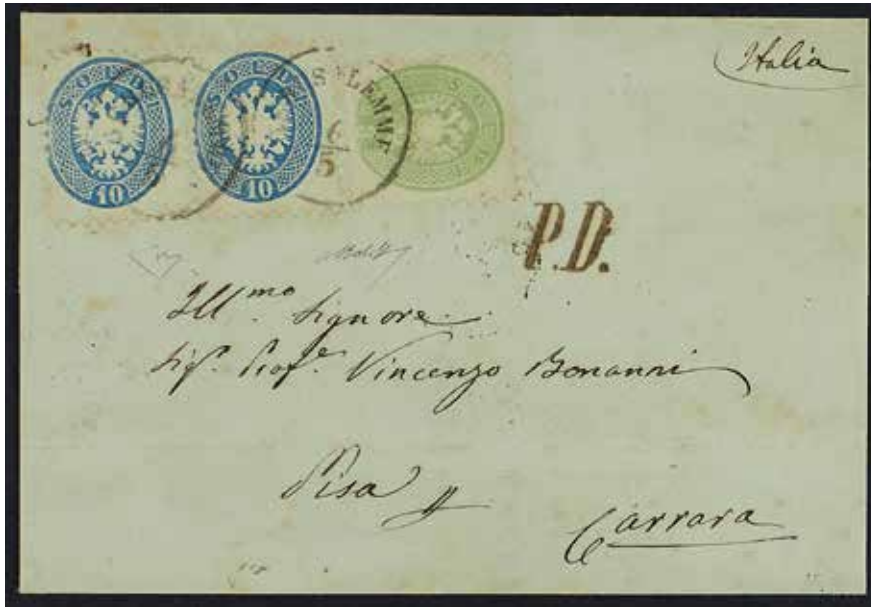 Italia
SOLDI
10
SOLDI
10
6
5
P.D.
Ill.mo Signore
Sig. Prof.e Vincenzo Bonanni
Pisa
Carrara